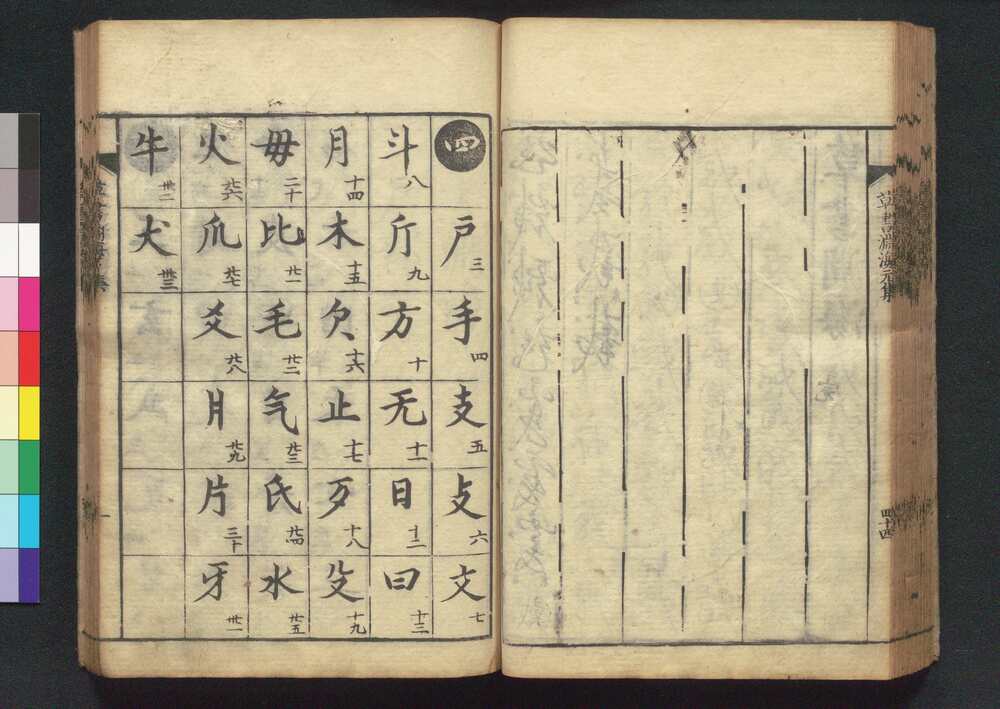 草書淵海元集
四十四
四
戶 三
手 四
支 五
攴 六
文 七
斗 八
斤 九
方 十
无 十一
日 十二
曰 十三
月 十四
木 十五
欠 十六
止 十七
歹 十八
殳 十九
毋 二十
比 廿一
毛 廿二
气 廿三
氏 廿四
水 廿五
火 廿六
爪 廿七
爻 廿八
爿 廿九
片 三十
牙 卅一
牛 卅二
犬 卅三